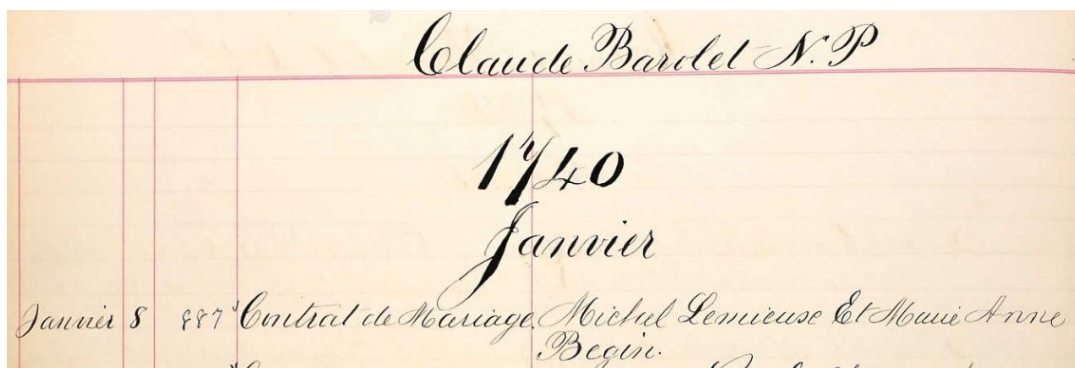 Claude Barolet N.P
1740
Janvier
Janvier 8 887 Contrat de Mariage. Michel Lemieuse Et Marie Anne
Begin.